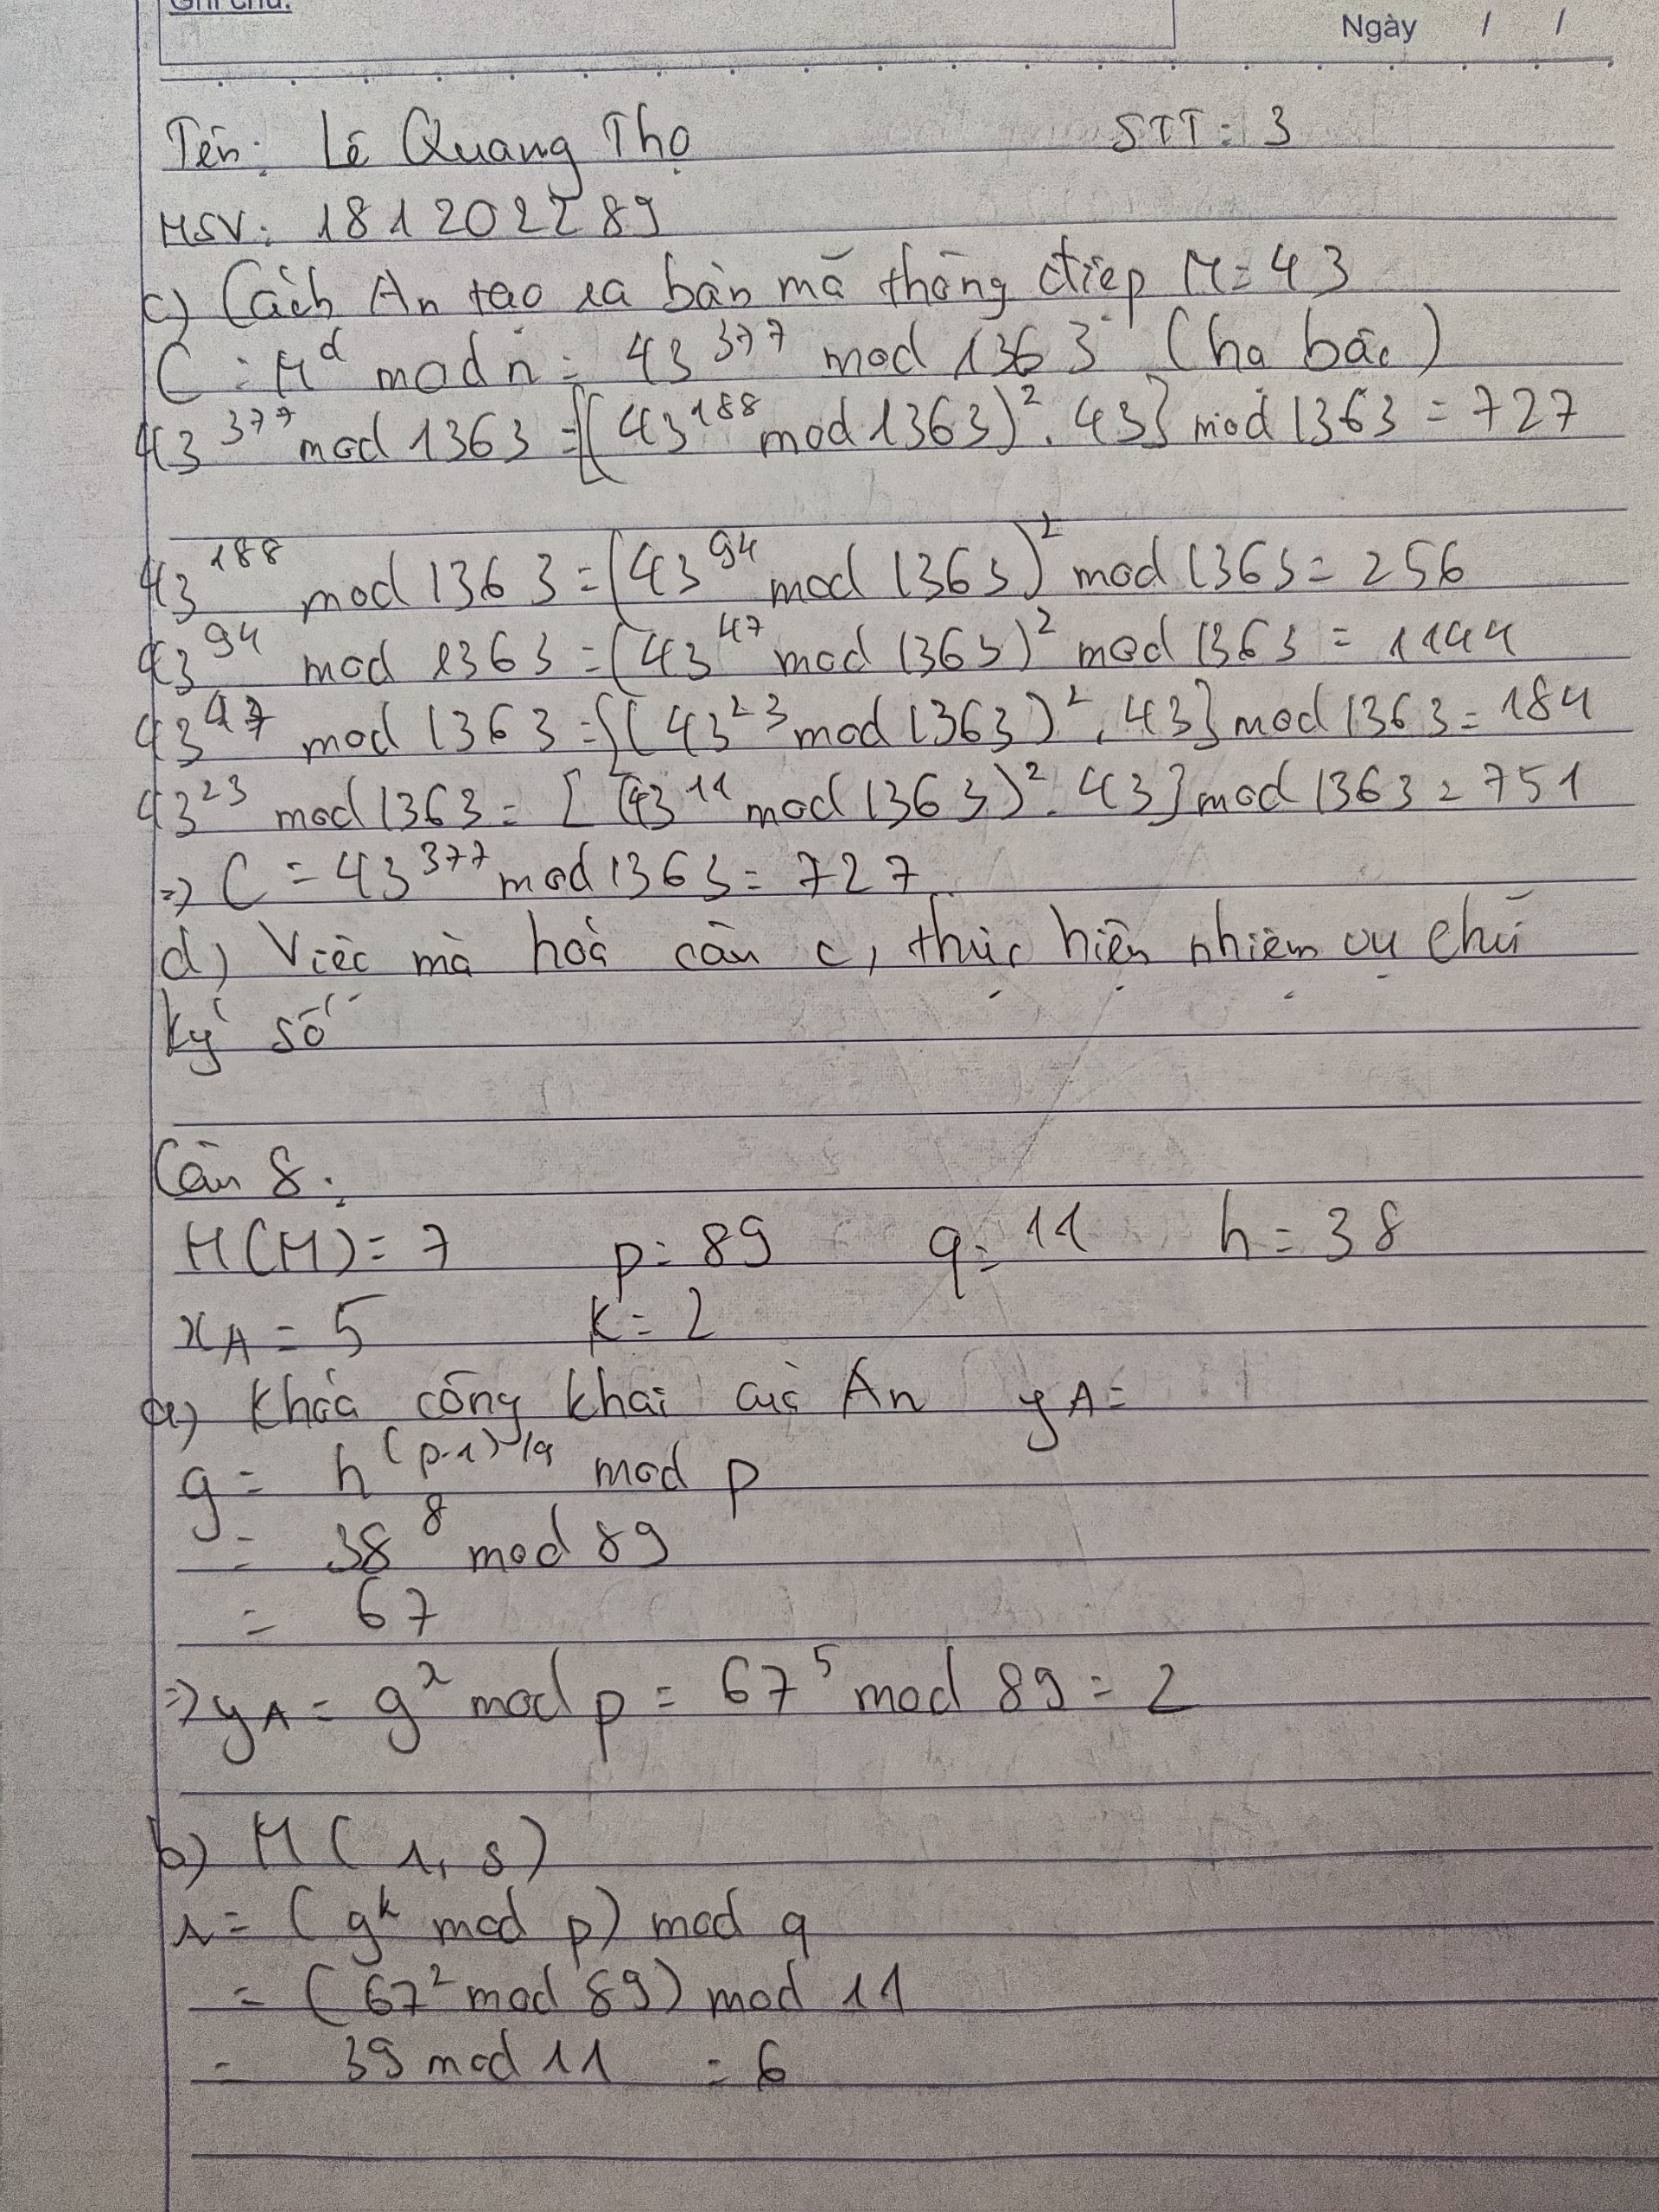 Ghi chú:
Ngày / /
Tên: Lê Quang Thọ STT: 3
MSV: 1812022289
c) Cách An tạo ra bản mã thông điệp M = 43
C = M^d mod n = 43^377 mod 1363 (hạ bậc)
43^377 mod 1363 = [(43^188 mod 1363)^2 . 43] mod 1363 = 727
43^188 mod 1363 = (43^94 mod 1363)^2 mod 1363 = 256
43^94 mod 1363 = (43^47 mod 1363)^2 mod 1363 = 1144
43^47 mod 1363 = [(43^23 mod 1363)^2 . 43] mod 1363 = 184
43^23 mod 1363 = [(43^11 mod 1363)^2 . 43] mod 1363 = 751
=> C = 43^377 mod 1363 = 727
d) Việc mã hoá câu c, thực hiện nhiệm vụ chữ
ký số
Câu 8:
H(M) = 7 p = 89 q = 11 h = 38
xA = 5 k = 2
a) Khóa công khai của An yA =
g = h^(p-1)/q mod p
= 38^8 mod 89
= 67
=> yA = g^x mod p = 67^5 mod 89 = 2
b) M (r, s)
r = (g^k mod p) mod q
= (67^2 mod 89) mod 11
= 39 mod 11 = 6